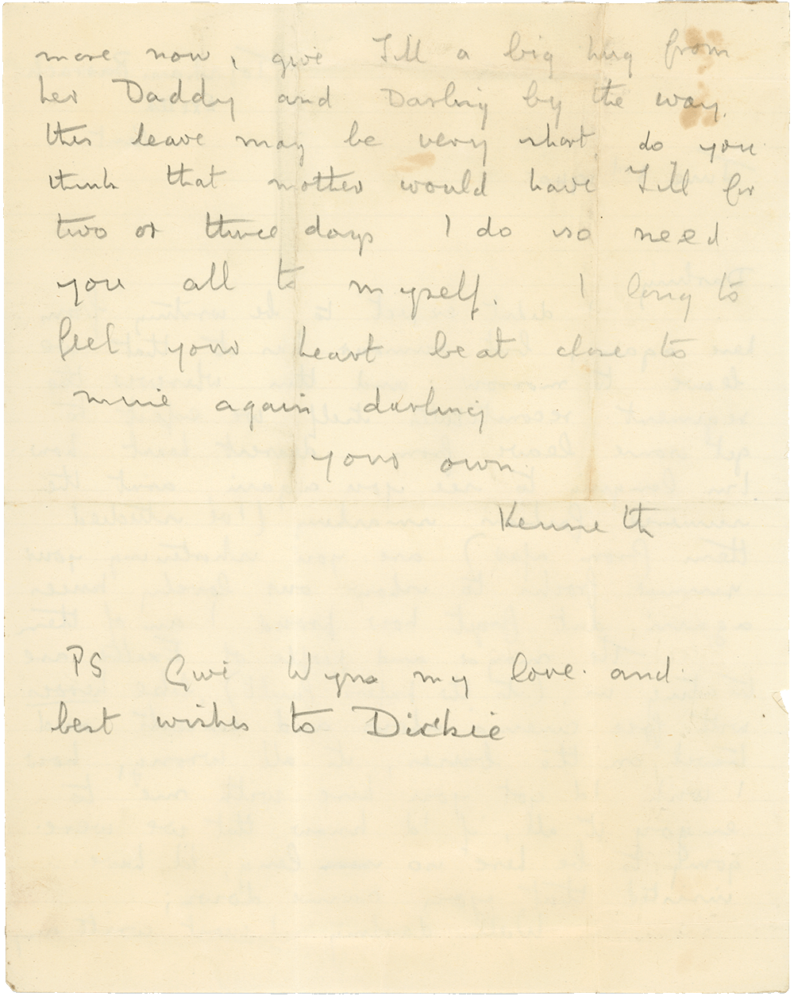 more now, give Jill a big hug from
her Daddy and Darling by the way.
this leave may be very short do you
think that mother would have Jill for
two or three days I do so need
you all to myself. I long to
feel your heart beat close to
mine again darling
your own.
Kenneth
PS Give Wyna my love and
best wishes to Dickie